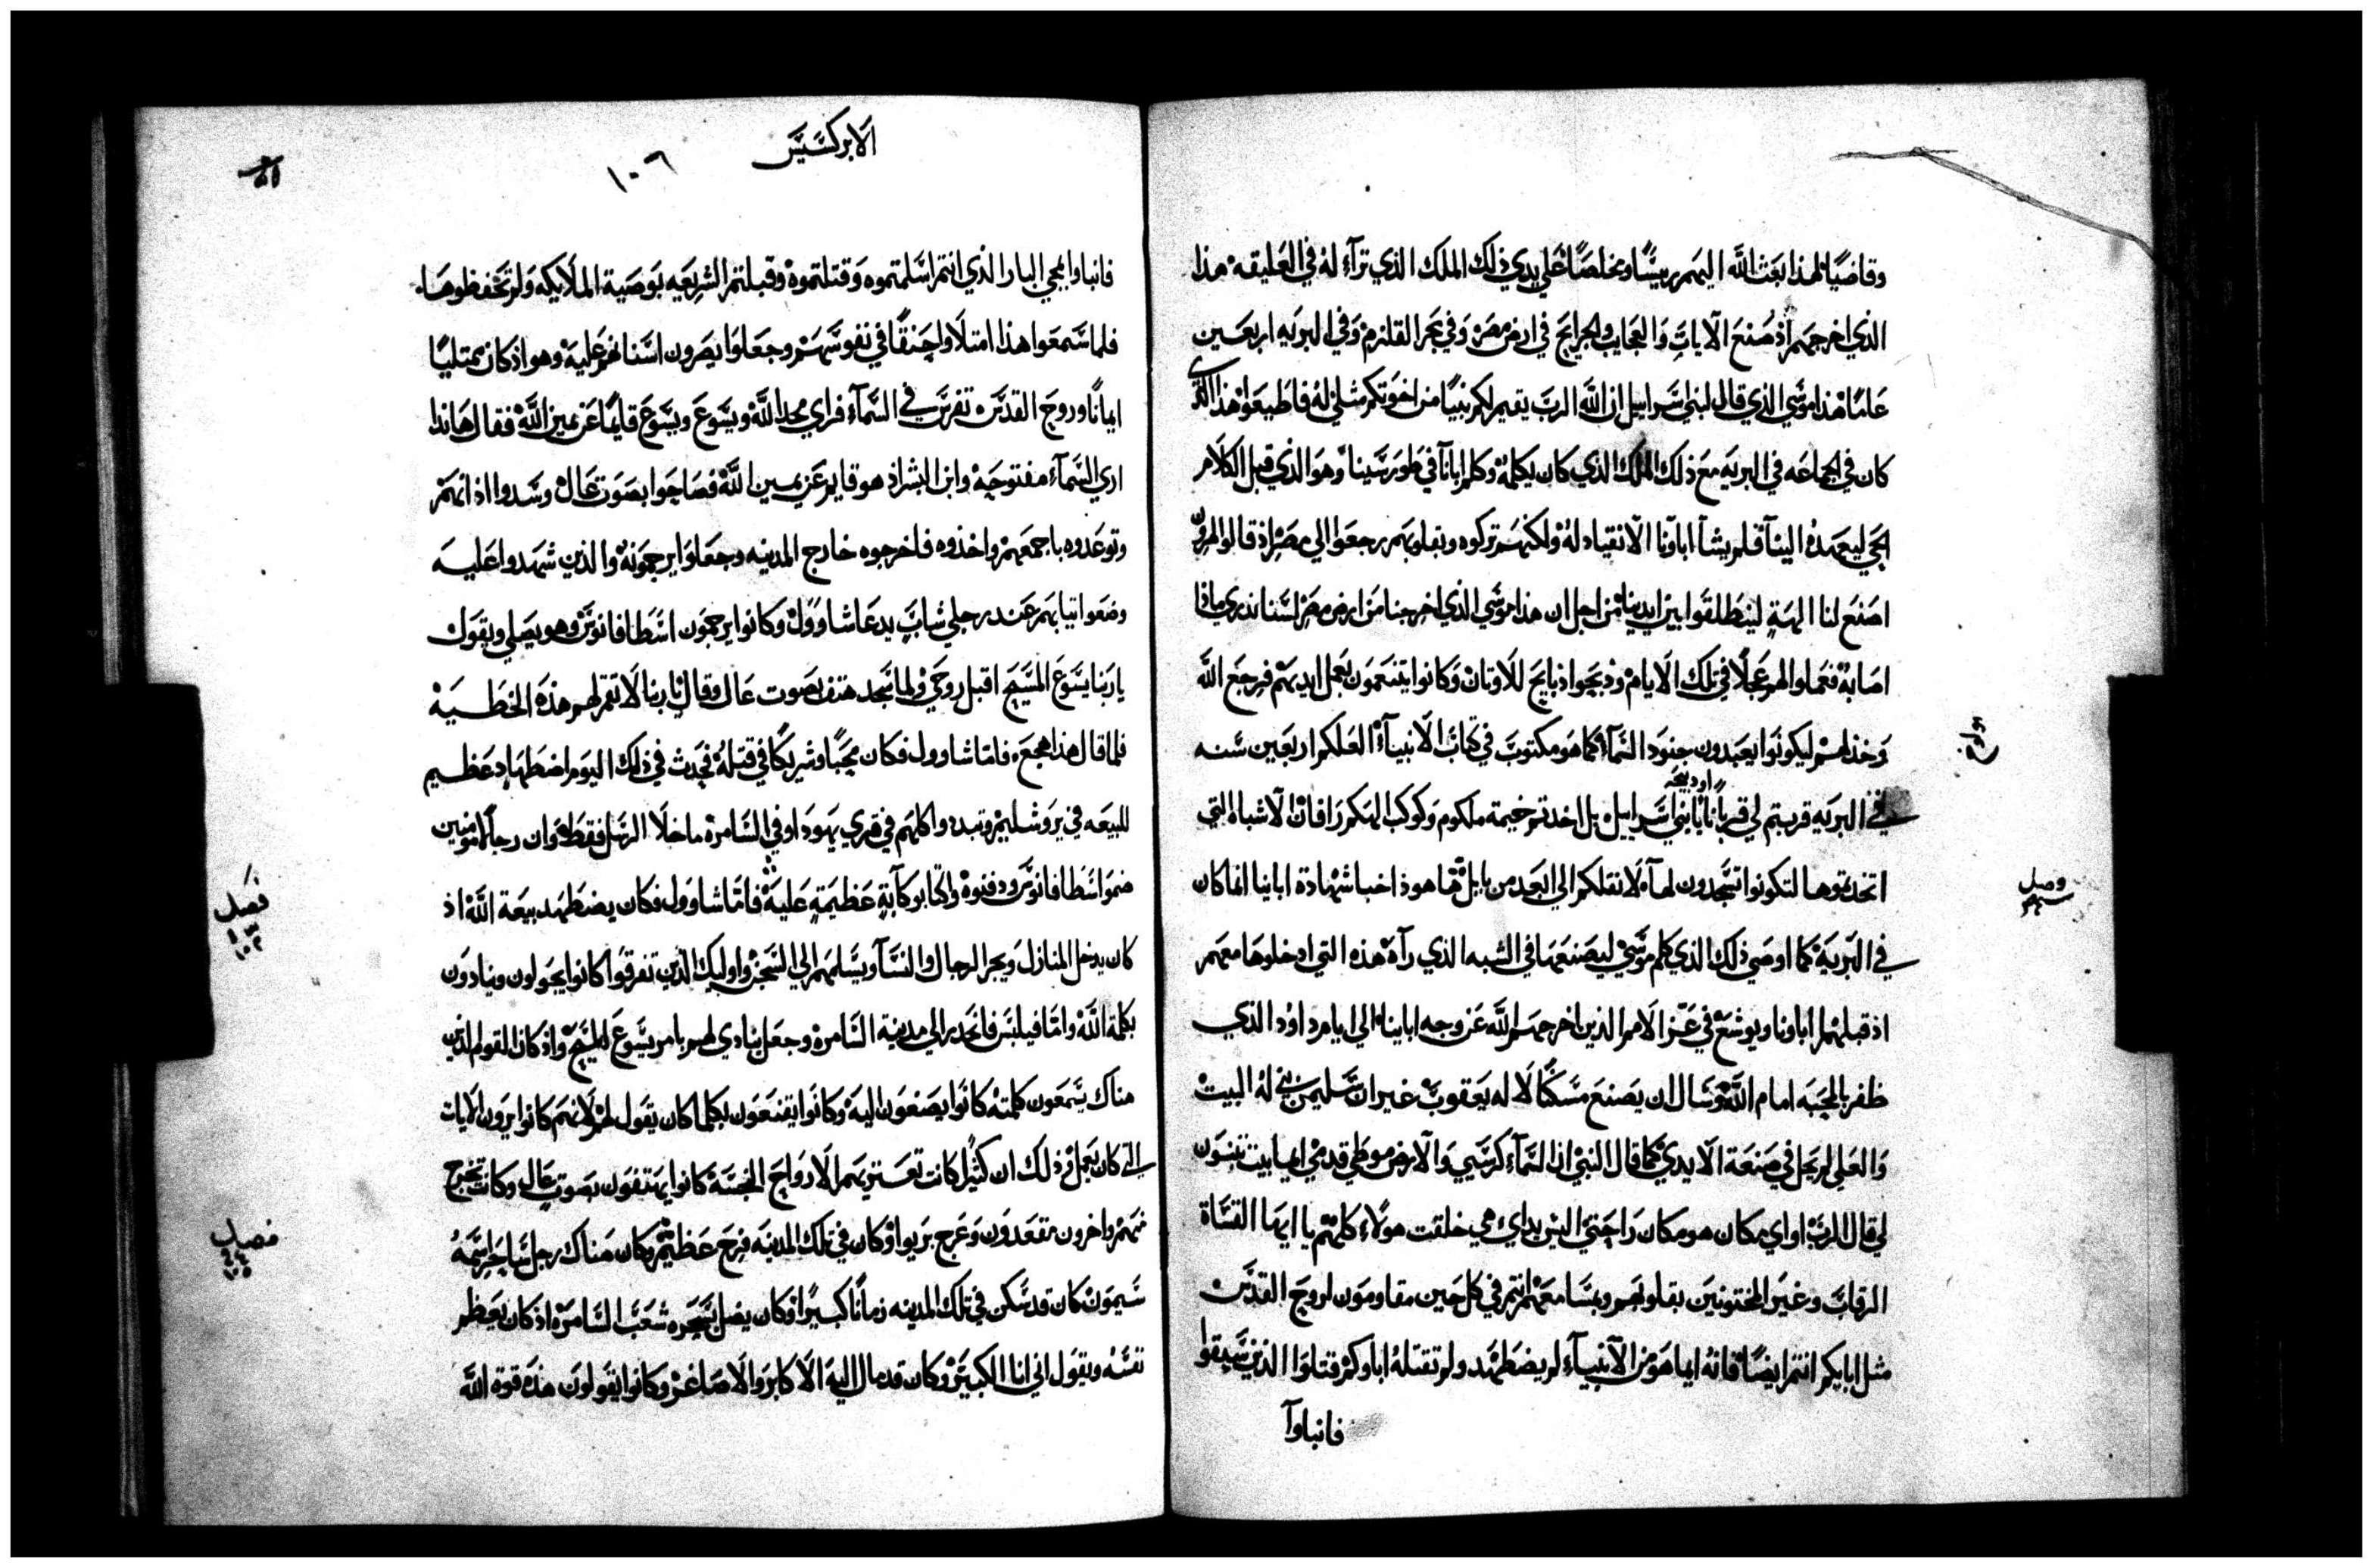 وقاضيًا لهذا بعث الله اليهم رييسًا ومخلصًا على يدي ذلك الملك الذي ترآء له في العليقه هذا
الذي اخرجهم اذ صنع الايات والعجايب والجرايح في ارض مصر وفي بحر القلزم وفي البريه اربعين
عامًا هذا موسي الذي قال لبني اسراييل ان الله الرب يقيم لكم نبيًا من اخوتكم مثلي له فاطيعوا هذا الذي
كان في الجماعه في البريه مع ذلك الملك الذي كان يكلمه وكلم ابانا في طور سينا وهو الذي قبل الكلام
الحي ليعهده الينا فلم يشآ اباونا الانقياد له ولكنهم تركوه وبقلوبهم رجعوا الي مصر اذ قالوا لهرون
اصنع لنا الهةٍ لينطلقوا بين ايدينا من اجل ان هذا موسي الذي اخرجنا من ارض مصر لسنا ندري ماذا
اصابه فعملوا لهم عجلًا في تلك الايام وذبحوا ذبايح للاوثان وكانوا يتنعمون بعمل ايديهم فرجع الله
وخذلهم ليكونوا يعبدون جنود السمآء كما هو مكتوب في كتاب الانبيآء العلكم اربعين سنه
في البريه قربتم لي قربانًا او ذبيحه يا بني اسراييل بل اخذتم خيمة ملكوم وكوكب الهكم رافان الاشباه التي
اتخذتموها لتكونوا تسجدون لها لانقلكم الي ابعد من بابل فها هوذا خبا شهادة ابايا انما كان
في البريه كما اوصي ذلك الذي كلم موسي ليصنعها في الشبه الذي رآه هذه التي ادخلوها معهم
اذ قبلتها اباونا ويوشع في عز الامم الذين اخرجهم الله عن وجه اباينا الي ايام داود الذي
ظفر بالمحبه امام الله وسال ان يصنع مسكنًا لاله يعقوب غير ان سليمن بني له البيت
والعلي لم يحل في صنعة الايدي كما قال النبي ان السمآء كرسيي والارض موطي قدمي ايما بيت تبنون
لي قال الرب او اي مكان هو مكان راحتي اليس يداي هي خلقت هولاء كلهم يا ايها القساة
الرقاب وغير المختونين بقلوبهم وبمسامعهم انتم في كل حين مقاومون لروح القدس
مثل ابايكم انتم ايضًا فانه ايما هو من الانبيآء لم يضطهد ولم تقتله اباوكم قتلوا الذين سبقوا
فانباوا
وصل
الابركسيس
١٠٦
فانباوا بمجي البار الذي انتم اسلمتموه وقتلتموه وقبلتم الشريعه بوصية الملايكه ولم تحفظوها
فلما سمعوا هذا امتلاوا حنقًا في نفوسهم وجعلوا يصرون اسنانهم عليه وهو اذ كان ممتليًا
ايمانًا وروح القدس تفرس في السمآء فراي مجد الله ويسوع ويسوع قايمًا عن يمين الله فقال هانذا
اري السمآء مفتوحه وابن البشر اذ هو قايم عن يمين الله فصاحوا بصوت عال وسدوا اذانهم
وتوعدوه باجمعهم واخذوه فاخرجوه خارج المدينه وجعلوا يرجمونه والذين شهدوا عليه
وضعوا ثيابهم عند رجلي شاب يدعا شاوول وكانوا يرجمون اسطافانوس وهو يصلي ويقول
يا ربنا يسوع المسيح اقبل روحي ولما سجد هتف بصوت عال وقال يا ربنا لا تقم لهم هذه الخطيه
فلما قال هذا هجع فاما شاوول فكان محبًا وشريكًا في قتله فحدث في ذلك اليوم اضطهاد عظيم
للبيعه في يروشليم وتبددوا كلهم في قري يهودا وفي السامره ما خلا الرسل فقط وان رجالًا مومنين
ضموا اسطافانوس ودفنوه واكتابوا كآبةٍ عظيمةٍ عليه فاما شاوول فكان يضطهد بيعة الله اذ
كان يدخل المنازل ويجر الرجال والنسآ ويسلمهم الي السجن واوليك الذين تفرقوا كانوا يجولون وينادون
بكلمة الله واما فيلبس فانحدر الي مدينة السامره وجعل ينادي لهم بامر يسوع المسيح واذ كان القوم الذين
هناك يسمعون كلمته كانوا يصنعون اليه وكانوا يقنعون بكلما كان يقول لهم لانهم كانوا يرون الايات
التي كان يعمل وذلك ان كثيرًا كانت تعتريهم الارواح النجسه كانوا يهتفون بصوتٍ عال وكانت تخرج
منهم واخرون مقعدون وعرج بريوا وكان في تلك المدينه فرح عظيم وكان هناك رجل ساحر اسمه
سيمون كان قد سكن في تلك المدينه زمانًا كبيرًا وكان يضل بسحره شعب السامره اذ كان يعظم
نفسه ويقول اني انا الكبير وكان قد مال اليه الاكابر والاصاغر وكانوا يقولون هذه قوة الله
فصل
فصل